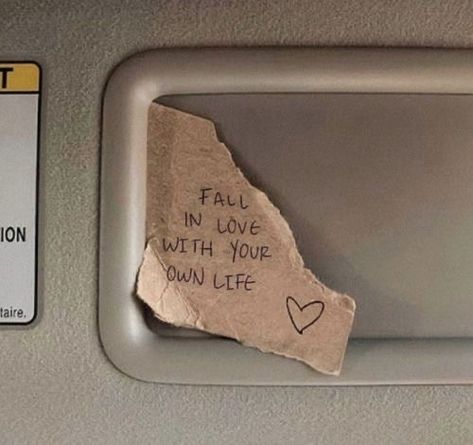 T
ION
taire.
FALL
IN LOVE
WITH YOUR
OWN LIFE